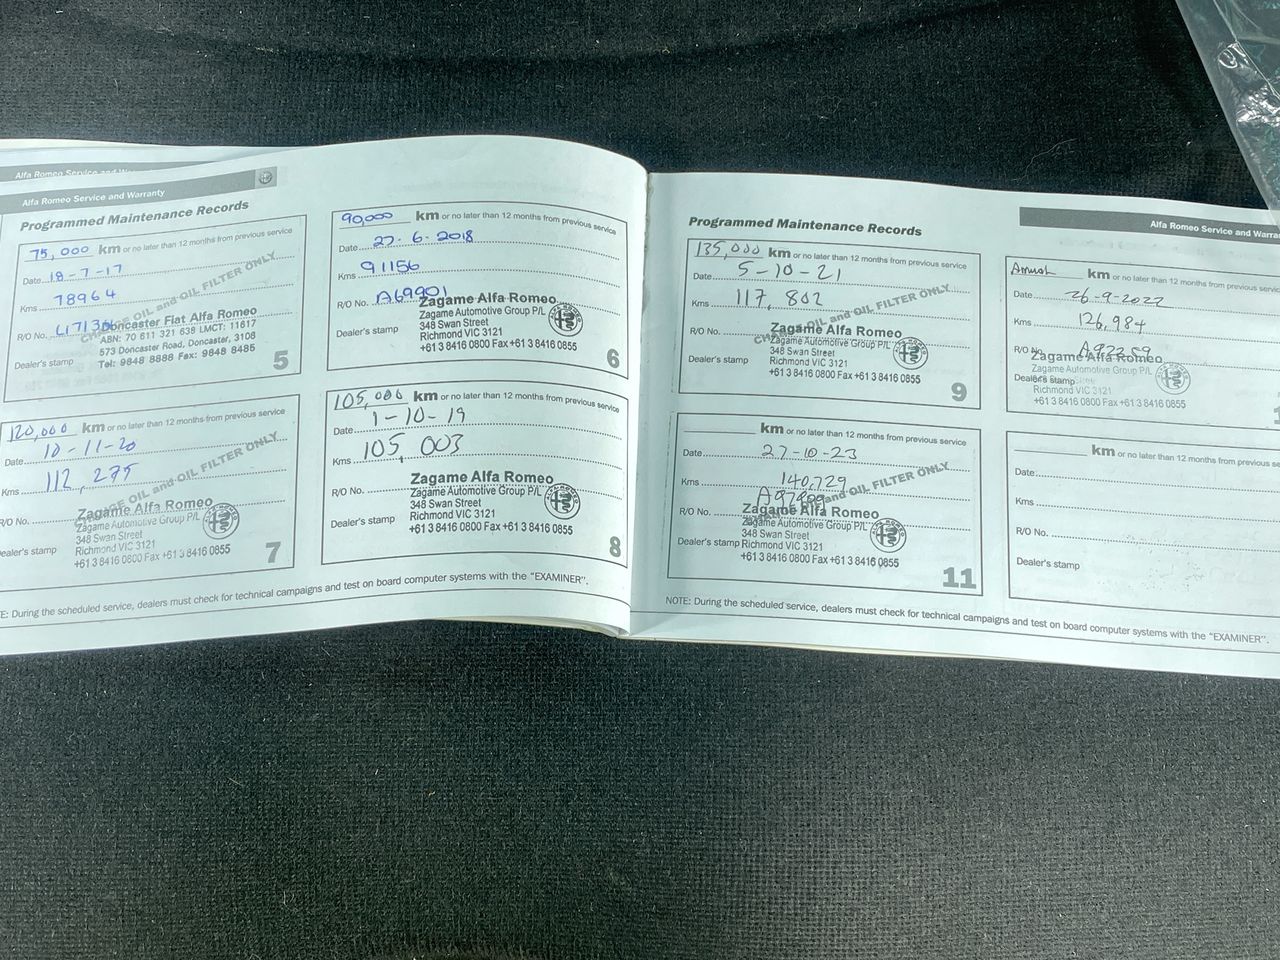 Alfa Romeo Service and
Alfa Romeo Service and Warranty
Programmed Maintenance Records
75,000 km or no later than 12 months from previous service
Date 18-7-17
Kms 78964
R/O No.
CHANGE OIL and OIL FILTER ONLY
Doncaster Fiat Alfa Romeo
ABN: 70 611 321 638 LMCT: 11617
573 Doncaster Road, Doncaster, 3108
Tel: 9848 8888 Fax: 9848 8485
Dealer's stamp
5
90,000 km or no later than 12 months from previous service
Date 27-6-2018
Kms 91156
R/O No. A69901
Zagame Alfa Romeo
Zagame Automotive Group P/L
348 Swan Street
Richmond VIC 3121
+61 3 8416 0800 Fax +61 3 8416 0855
Dealer's stamp
6
120,000 km or no later than 12 months from previous service
Date 10-11-20
Kms 112,275
R/O No.
CHANGE OIL and OIL FILTER ONLY
Zagame Alfa Romeo
Zagame Automotive Group P/L
348 Swan Street
Richmond VIC 3121
+61 3 8416 0800 Fax +61 3 8416 0855
Dealer's stamp
7
105,000 km or no later than 12 months from previous service
Date 1-10-19
Kms 105,003
R/O No.
Zagame Alfa Romeo
Zagame Automotive Group P/L
348 Swan Street
Richmond VIC 3121
+61 3 8416 0800 Fax +61 3 8416 0855
Dealer's stamp
8
NOTE: During the scheduled service, dealers must check for technical campaigns and test on board computer systems with the "EXAMINER".
Alfa Romeo Service and
Programmed Maintenance Records
135,000 km or no later than 12 months from previous service
Date 5-10-21
Kms 117,802
R/O No.
CHANGE OIL and OIL FILTER ONLY
Zagame Alfa Romeo
Zagame Automotive Group P/L
348 Swan Street
Richmond VIC 3121
+61 3 8416 0800 Fax +61 3 8416 0855
Dealer's stamp
9
km or no later than 12 months from previous
Date 26-9-2022
Kms 126,984
R/O No.
Zagame Alfa Romeo
Zagame Automotive Group P/L
348 Swan Street
Richmond VIC 3121
+61 3 8416 0800 Fax +61 3 8416 0855
Dealer's stamp
km or no later than 12 months from previous service
Date 27-10-23
Kms 140,729
R/O No.
CHANGE OIL and OIL FILTER ONLY
Zagame Alfa Romeo
Zagame Automotive Group P/L
348 Swan Street
Richmond VIC 3121
+61 3 8416 0800 Fax +61 3 8416 0855
Dealer's stamp
11
km or no later than 12 months from previous
Date
Kms
R/O No.
Dealer's stamp
NOTE: During the scheduled service, dealers must check for technical campaigns and test on board computer systems with the "EXAMINER".